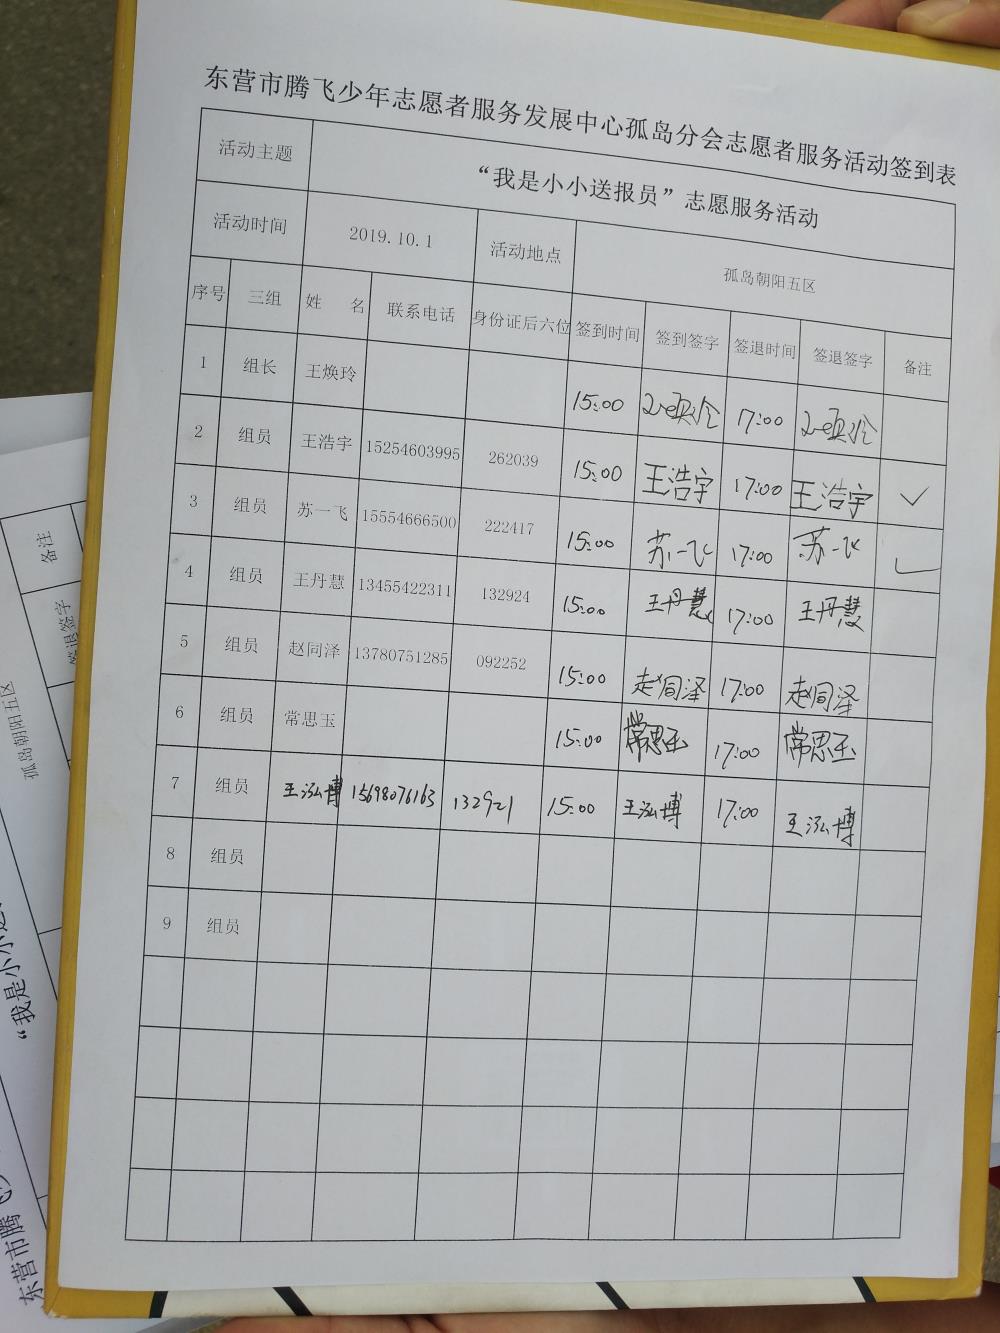 东营市腾飞少年志愿者服务发展中心孤岛分会志愿者服务活动签到表
活动主题 “我是小小送报员”志愿服务活动
活动时间 2019.10.1 活动地点 孤岛朝阳五区
序号 三组 姓 名 联系电话 身份证后六位 签到时间 签到签字 签退时间 签退签字 备注
1 组长 王焕玲 15:00 17:00
2 组员 王浩宇 15254603995 262039 15:00 王浩宇 17:00 王浩宇 ✓
3 组员 苏一飞 15554666500 222417 15:00 苏一飞 17:00 苏一飞
4 组员 王丹慧 13455422311 132924 15:00 王丹慧 17:00 王丹慧
5 组员 赵同泽 13780751285 092252 15:00 赵同泽 17:00 赵同泽
6 组员 常思玉 15:00 常思玉 17:00 常思玉
7 组员 王泓博 15698076163 132921 15:00 王泓博 17:00 王泓博
8 组员
9 组员
备注
签退签字
孤岛朝阳五区
“我是小小送
东营市腾飞少